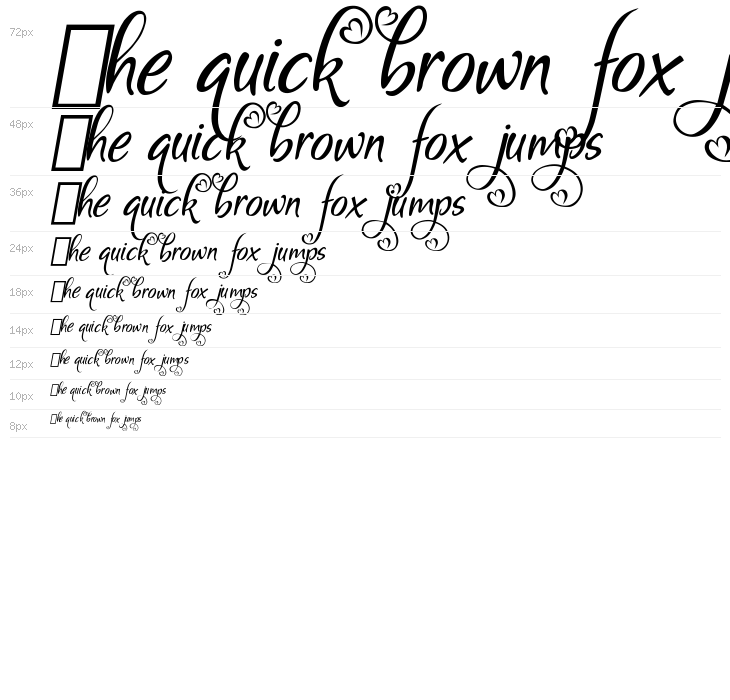 72px
he quick brown fox j
48px
he quick brown fox jumps
36px
he quick brown fox jumps
24px
he quick brown fox jumps
18px
he quick brown fox jumps
14px
he quick brown fox jumps
12px
he quick brown fox jumps
10px
he quick brown fox jumps
8px
he quick brown fox jumps